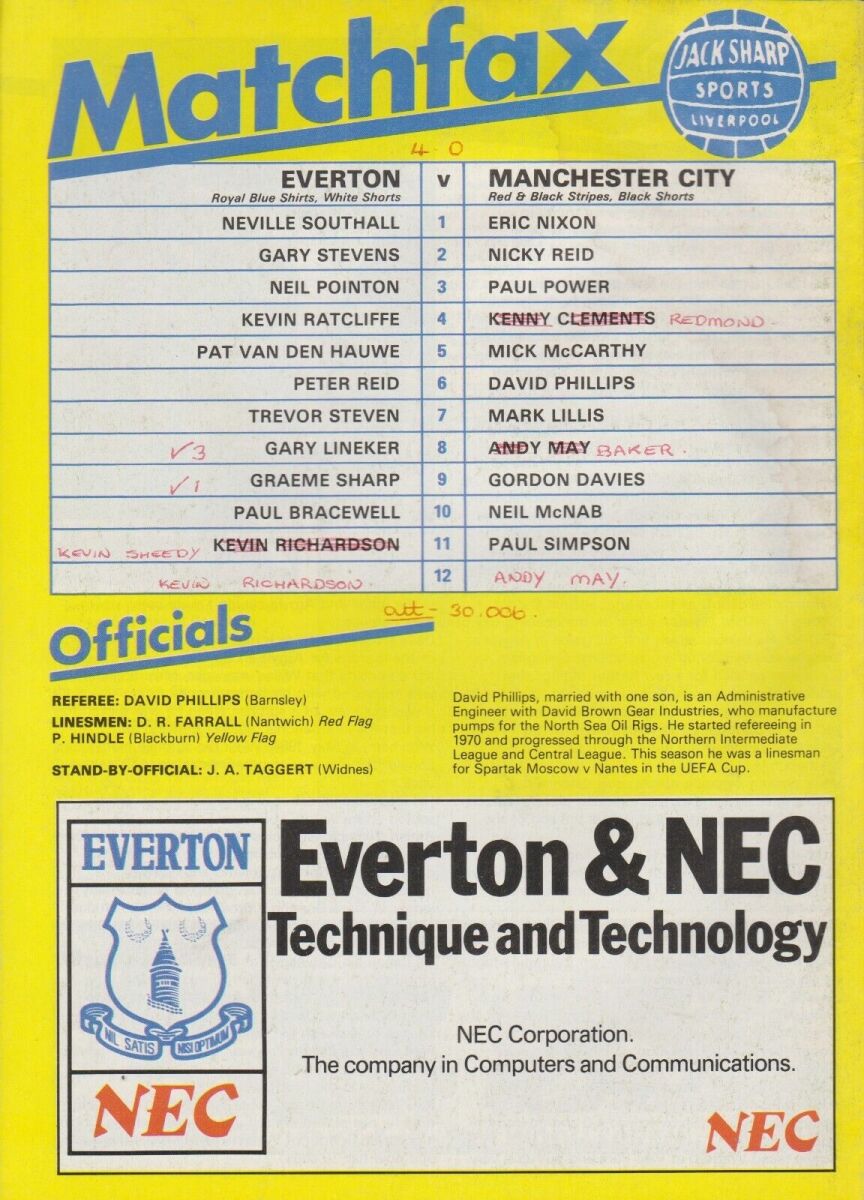 Matchfax
JACK SHARP
SPORTS
LIVERPOOL
4 0
EVERTON v MANCHESTER CITY
Royal Blue Shirts, White Shorts Red & Black Stripes, Black Shorts
NEVILLE SOUTHALL 1 ERIC NIXON
GARY STEVENS 2 NICKY REID
NEIL POINTON 3 PAUL POWER
KEVIN RATCLIFFE 4 KENNY CLEMENTS REDMOND.
PAT VAN DEN HAUWE 5 MICK McCARTHY
PETER REID 6 DAVID PHILLIPS
TREVOR STEVEN 7 MARK LILLIS
✓3 GARY LINEKER 8 ANDY MAY BAKER.
✓1 GRAEME SHARP 9 GORDON DAVIES
PAUL BRACEWELL 10 NEIL McNAB
KEVIN SHEEDY KEVIN RICHARDSON 11 PAUL SIMPSON
KEVIN RICHARDSON. 12 ANDY MAY.
att - 30.006.
Officials
REFEREE: DAVID PHILLIPS (Barnsley)
LINESMEN: D. R. FARRALL (Nantwich) Red Flag
P. HINDLE (Blackburn) Yellow Flag
STAND-BY-OFFICIAL: J. A. TAGGERT (Widnes)
David Phillips, married with one son, is an Administrative
Engineer with David Brown Gear Industries, who manufacture
pumps for the North Sea Oil Rigs. He started refereeing in
1970 and progressed through the Northern Intermediate
League and Central League. This season he was a linesman
for Spartak Moscow v Nantes in the UEFA Cup.
EVERTON
NIL SATIS NISI OPTIMUM
NEC
Everton & NEC
Technique and Technology
NEC Corporation.
The company in Computers and Communications.
NEC